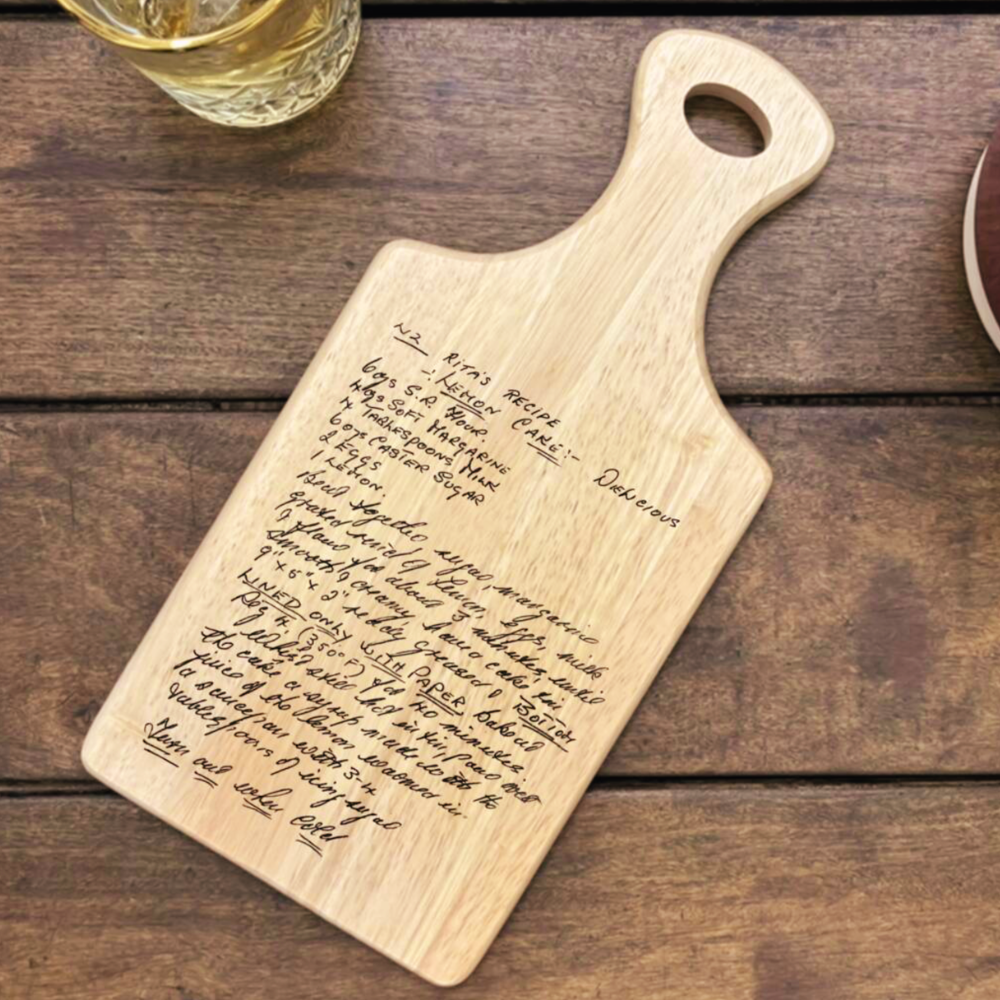 N2
RITA'S RECIPE
-: LEMON CAKE :- DIELICIOUS
6ozs S.R. FLOUR.
4ozs SOFT MARGARINE
4 TABLESPOONS MILK
6ozs CASTER SUGAR
2 EGGS
1 LEMON.
Beat together sugar, margarine
grated rind of lemon, eggs, milk
& flour for about 3 minutes, until
smooth & creamy. Pour cake in
9" x 6" x 2" ready greased & BOTTOM
LINED ONLY WITH PAPER bake at
Reg 4 (350°F) for 40 minutes.
Whilst still hot in tin, pour over
the cake a syrup made with the
juice of the lemon warmed in
a saucepan with 3-4
tablespoons of icing sugar
Turn out when cold